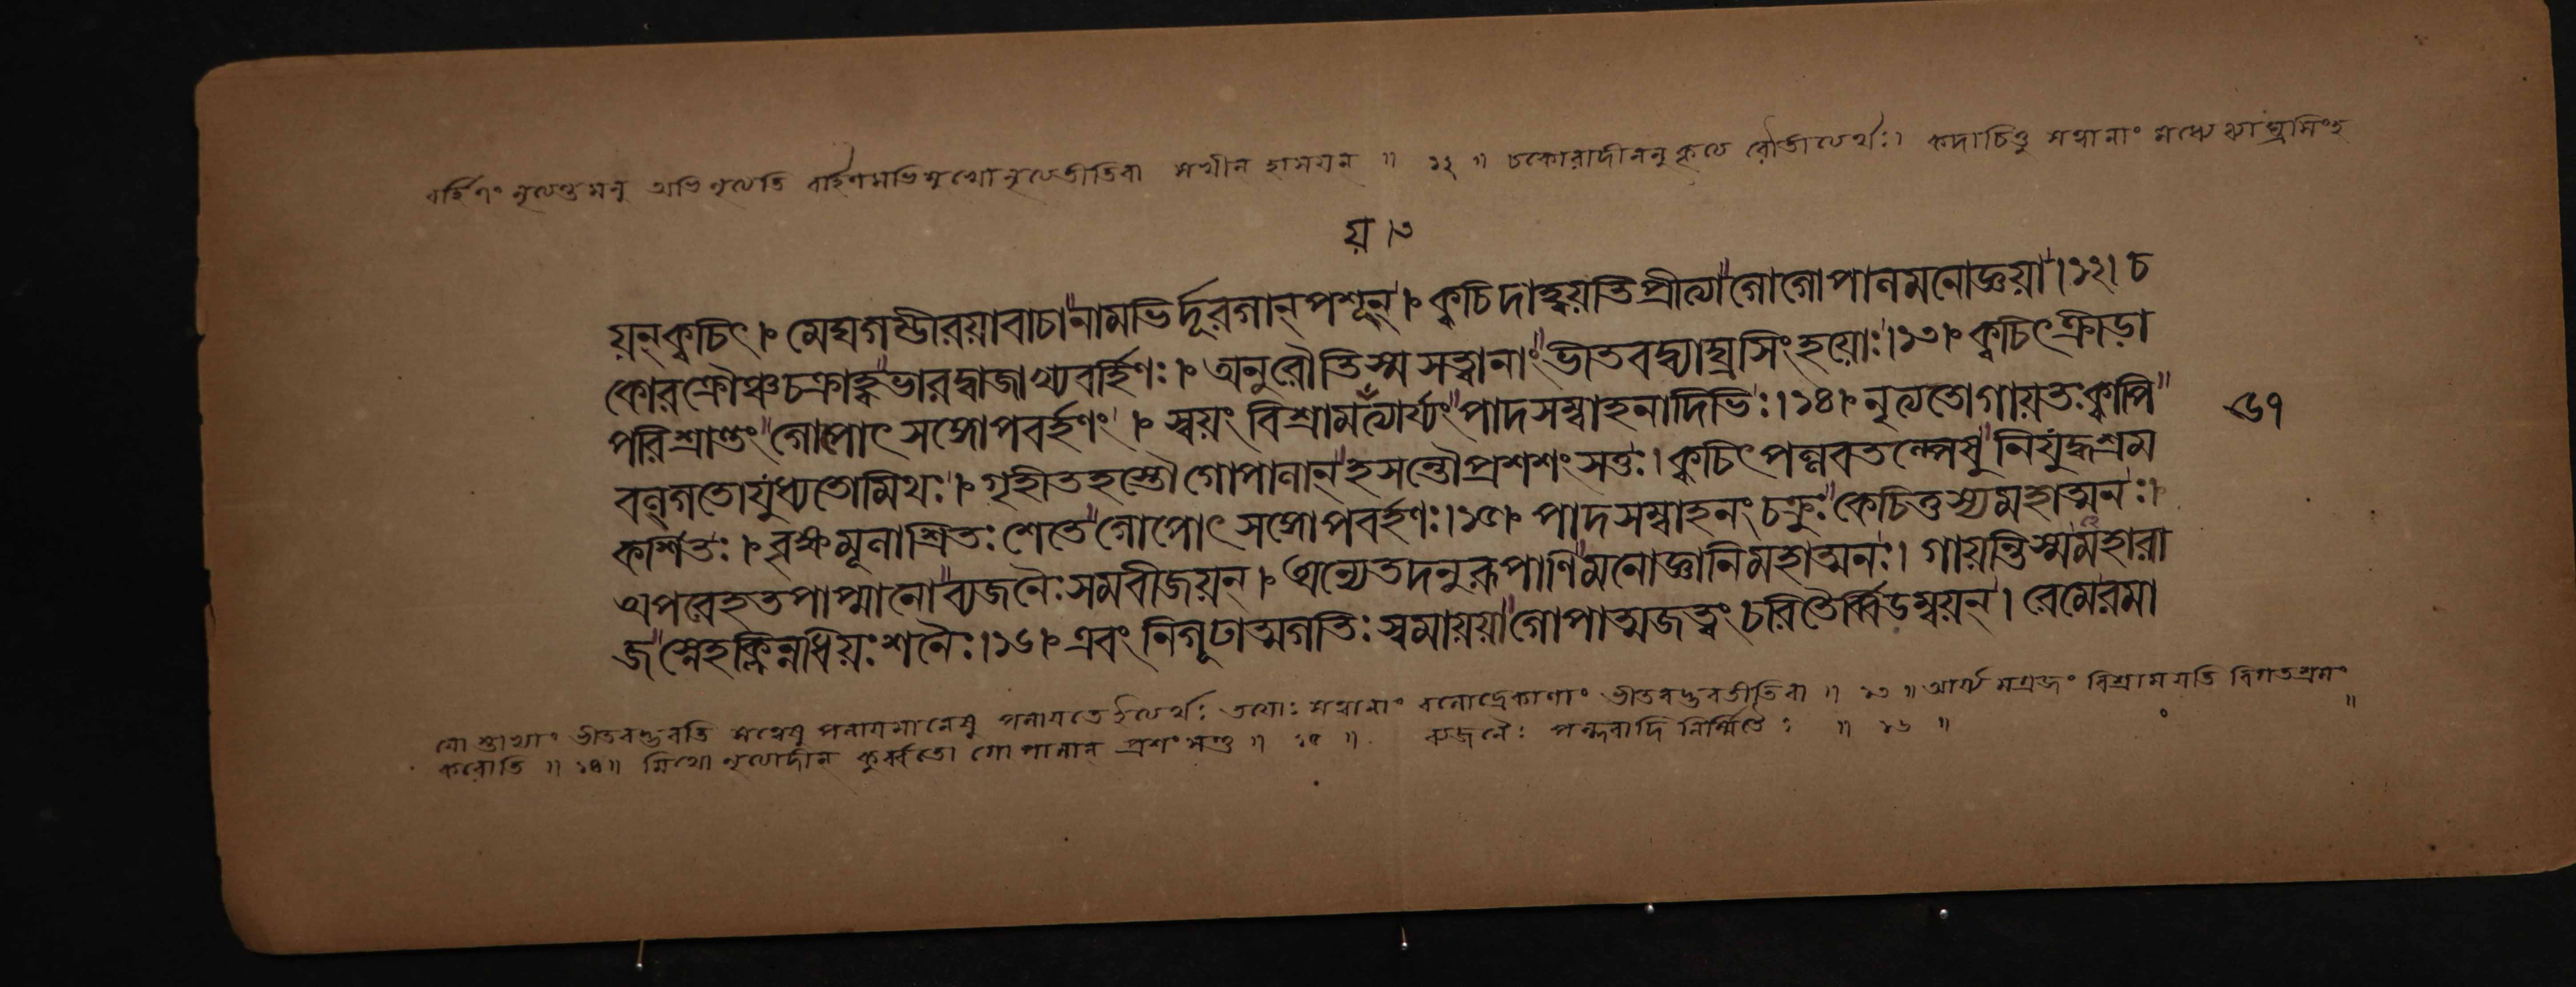 বর্হিণং নৃত্যন্তমনু অভিনৃত্যতি বর্হিণমভিমুখো নৃত্যতীতিবা সখীন হাসয়ন ॥ ১২ ॥ চকোরাদীননুকৃত্য রৌতীত্যর্থঃ। কদাচিত্তু সত্বানাং মধ্যে ব্যাঘ্রসিংহ
য় ।৩
য়ন্ক্বচিৎ। মেঘগম্ভীরয়াবাচানামভির্দূরগান্পশূন্। ক্বচিদাহ্বয়তিপ্রীত্যাগোগোপানমনোজ্ঞয়া।১২। চ
কোরক্রৌঞ্চচক্রাহ্বভারদ্বাজাখ্যবর্হিণঃ। অনুরৌতিস্মসত্বানাংভীতবদ্ব্যাঘ্রসিংহয়োঃ।১৩। ক্বচিৎক্রীড়া
পরিশ্রান্তংগোপোৎসঙ্গোপবর্হণং। স্বয়ং বিশ্রাময়ত্যার্য্যংপাদসম্বাহনাদিভিঃ।১৪। নৃত্যতোগায়তঃক্বাপি
বল্গতোযুধ্যতোমিথঃ। গৃহীতহস্তৌগোপালান্হসন্তৌপ্রশশংসতুঃ। ক্বচিৎপল্লবতল্পেষুনিযুদ্ধশ্রম
কর্শিতঃ। বৃক্ষমূলাশ্রিতঃশেতেগোপোৎসঙ্গোপবর্হণঃ।১৫। পাদসম্বাহনং চক্রুঃকেচিত্তস্যমহাত্মনঃ।
অপরেহতপাপ্মানোব্যজনৈঃসমবীজয়ন্। অন্যেতদনুরূপাণিমনোজ্ঞানিমহাত্মনঃ। গায়ন্তিস্মমহারা
জস্নেহক্লিন্নধিয়ঃশনৈঃ।১৬। এবং নিগূঢাত্মগতিঃস্বমায়য়াগোপাত্মজত্বং চরিতৈর্ব্বিড়ম্বয়ন্। রেমেরমা
৬৭
ভীতবদ্ভবতি সত্বেষু পলায়মানেষু পলায়তে ইত্যর্থঃ তয়োঃ সত্বানাং বলোদ্রেকাণাং ভীতবদ্ভবতীতিবা ॥ ১৩ ॥ আর্য্যমগ্রজং বিশ্রাময়তি বিগতশ্রমং
করোতি ॥ ১৪ ॥ মিথো নৃত্যাদীন্ কুর্ব্বতো গোপালান্ প্রশংসতুঃ ॥ ১৫ ॥ ব্যজনৈঃ পল্লবাদি নির্ম্মিতৈঃ ॥ ১৬ ॥